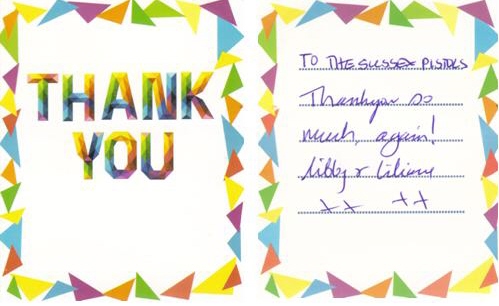 THANK
YOU
TO THE SUSSEX PISTOLS
Thankyou so
much, again!
Libby & Liliane
xx xx